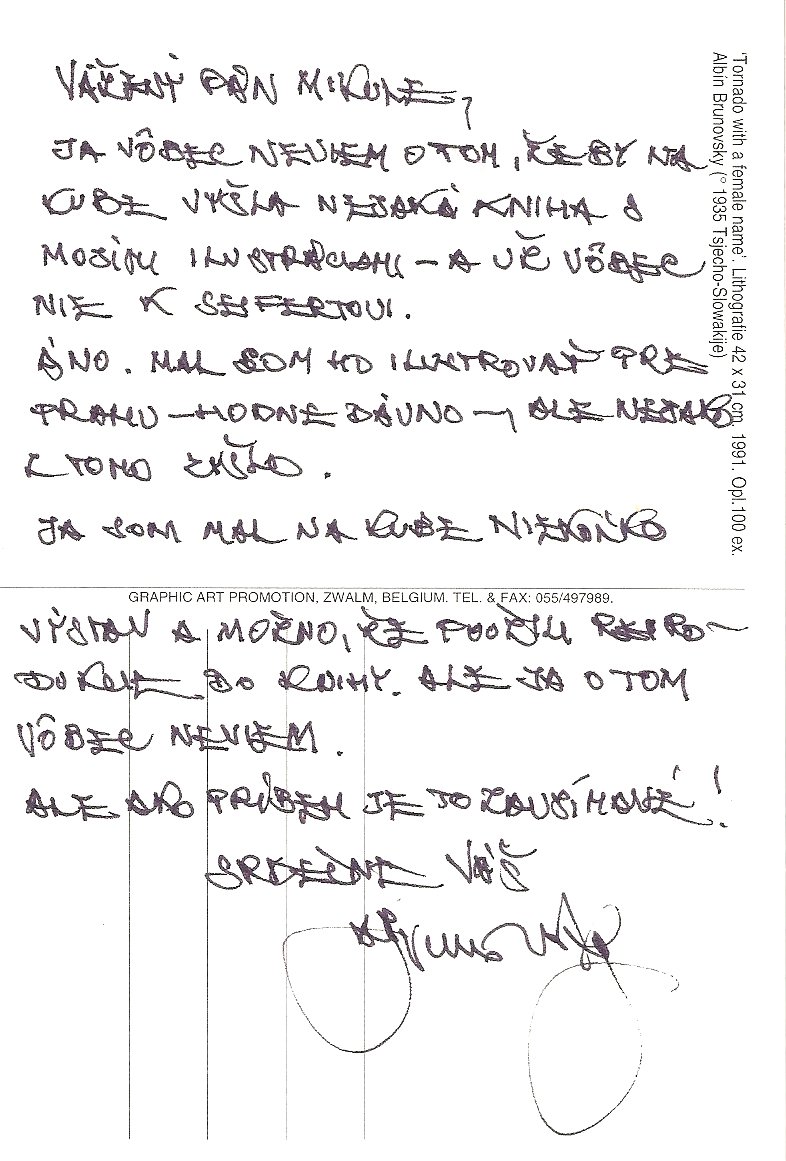 VÁŽENÝ PÁN MIKULE,
JA VÔBEC NEVIEM O TOM, ŽE BY NA
KUBE VYŠLA NEJAKÁ KNIHA S
MOJIMI ILUSTRÁCIAMI – A UŽ VÔBEC
NIE K SEIFERTOVI.
ÁNO. MAL SOM HO ILUSTROVAŤ PRE
PRAHU – HODNE DÁVNO –, ALE NEJAKO
Z TOHO ZIŠLO.
JA SOM MAL NA KUBE NIEKOĽKO
VÝSTAV A MOŽNO, ŽE POUŽILI REPRO-
DUKCIE DO KNIHY. ALE JA O TOM
VÔBEC NEVIEM.
ALE AKO PRÍBEH JE TO ZAUJÍMAVÉ!
SRDEČNE VÁŠ
Albín Brunovský
'Tornado with a female name'. Lithografie 42 x 31 cm. 1991. Opl.100 ex.
Albin Brunovsky (° 1935 Tsjecho-Slowakije)
GRAPHIC ART PROMOTION, ZWALM, BELGIUM. TEL. & FAX: 055/497989.